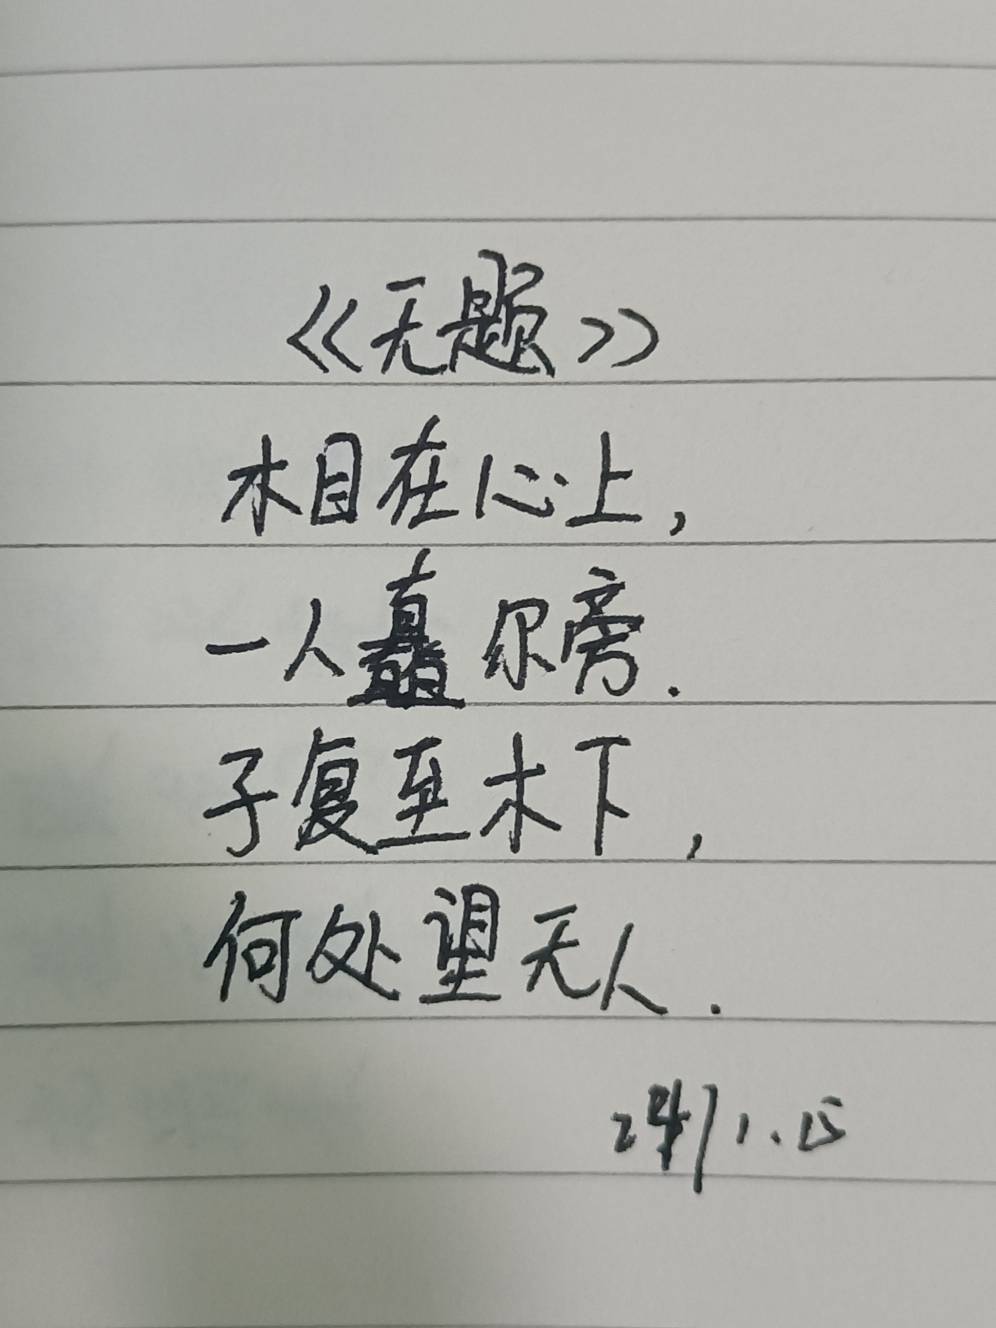 《无题》
木目在心上,
一人矗尔旁.
子复至木下,
何处望无人.
24/1.15